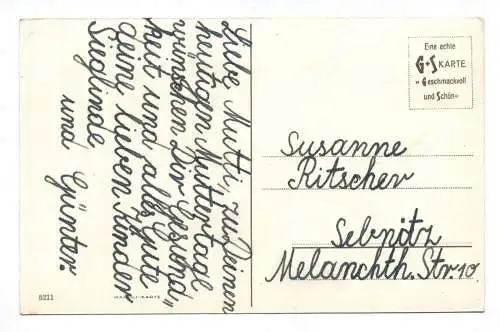 Liebe Mutti, zu Deinen
heutigen Muttertage
wünschen Dir Gesund„
heit und alles Gute
deine lieben Kinder
Sieglinde
und Günter.
Eine echte
G+S KARTE
»Geschmackvoll
und Schön«
Susanne
Ritscher
Sebnitz
Melanchth. Str. 10.
8211
-KARTE